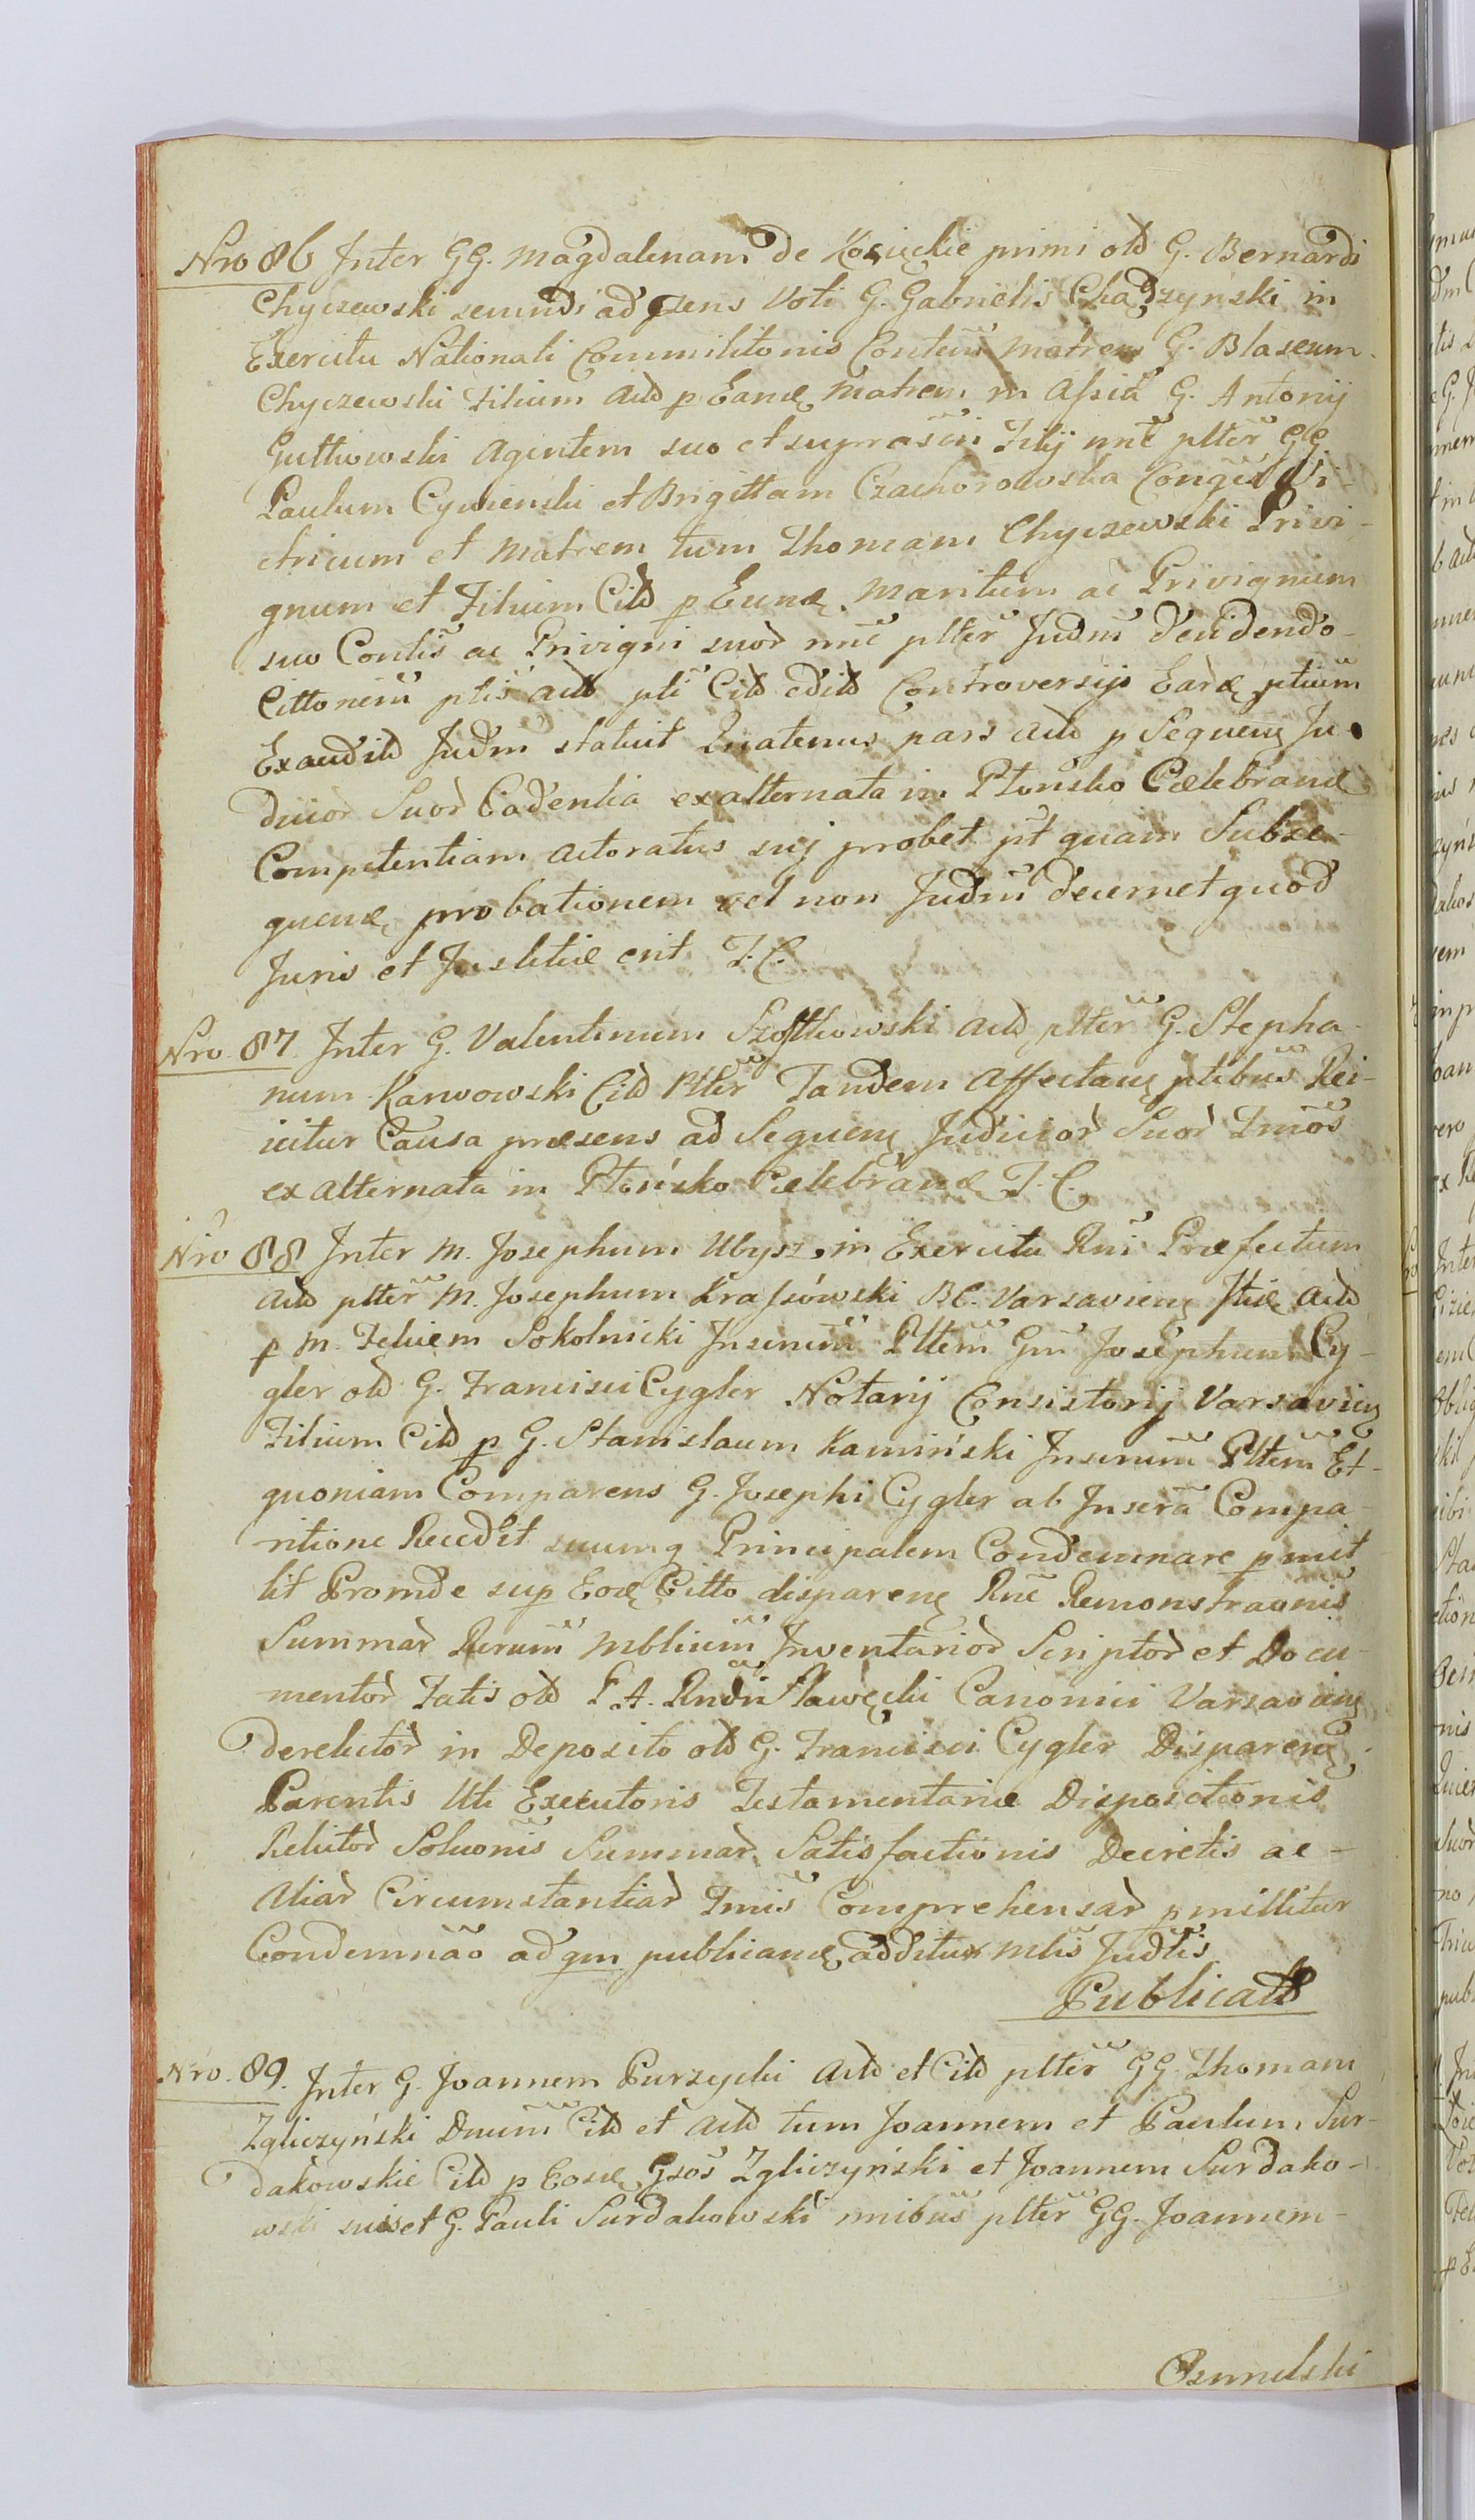 Nro 86 Inter GG. Magdalenam de Kosickie primi otd G. Bernardi
Chyczewski secundi ad psens Voti G. Gabrielis Chadzynski in
Exercitu Nationali Commilitonis Contem Matrem G. Blaseum
Chyczewski Filium Actd p Eand Matrem in Assia G. Antonij
Gutkowski Agentem suo et suprascri Filij nne plter GG
Paulum Cywienski et Brigittam Czachorowska Conges Vi-
tricum et Matrem tum Thomam Chyczewski Privi-
gnum et Filium Citd p Eund Maritum ac Privignum
suo Contis ac Privigni suor nne plter Judm decidendo
Cittonem ptis Actd pti Citd edild Controversijs Eard ptium
Exaudild Judm statuit Quatenus pars Actd p Sequen Ju-
dicior Suor Cadentia ex alternata in Płonsko Celebrand
Competentiam Actoratus suj probet pt quam Subse-
quend probationem vel non Judm decernet quod
Juris et Justitiæ erit T. C.
Nro. 87. Inter G. Valentinum Szoftkowski Actd plter G. Stepha-
num Karwowski Citd Plter Tandem Affectan ptibus Rei-
icitur Causa præsens ad Sequen Judicior Suor Tmos
ex alternata in Płońsko Celebrand T. C.
Nro 88 Inter M. Josephum Ubysz in Exercitu Rni Præfectum
Actd plter M. Josephum Krassówski BC. Varsavien Jtiæ Actd
p M. Felicem Sokolnicki Juscrim Pltem Gm Josephum Cy-
gler otd G. Francisci Cygler Notarij Consistorij Varsavien
Filium Citd p G. Stanislaum Kamiński Juscrim Pltem Et
quoniam Comparens G. Josephi Cygler ab Insera Compa-
ritione Recedit suumq Principalem Condemnare pmit
tit Proinde sup Eod Citto disparen Rne Remonstraonis
Summar Rerum Mblium Inventarior Scriptor et Docu-
mentor Fatis otd P. A. Rndi Sławęcki Canonici Varsavien
derelictor in Deposito otd G. Francisci Cygler Disparen
Parentis Uti Executoris Testamentariæ Dispositionis
Relictor Soluonis Summar Satisfactionis Decretis ac
Aliar Circumstantiar Tmis Comprehensar pmittitur
Condemnao ad qm publicand additur Mlis Judlis
Publicatt
Nro. 89. Inter G. Joannem Purzycki Actd et Citd plter GG. Thomam
Zgliczyński Dnum Citd et Actd tum Joannem et Paulum Sur-
dakowskie Citd p Eosd Gsos Zgliczyński et Joannem Surdako-
wski suis et G. Pauli Surdakowski nnibus plter GG. Joannem